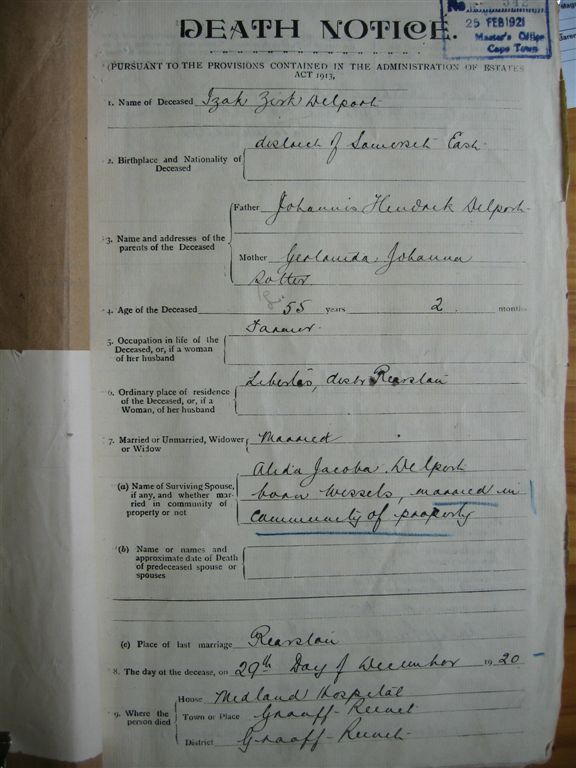 No 342
DEATH NOTICE.
25 FEB 1921
Master's Office
Cape Town
(PURSUANT TO THE PROVISIONS CONTAINED IN THE ADMINISTRATION OF ESTATES
ACT 1913,
1. Name of Deceased Izak Zirk Delport
2. Birthplace and Nationality of Deceased
district of Somerset East
3. Name and addresses of the parents of the Deceased
Father Johannis Hendrik Delport
Mother Johanna
4. Age of the Deceased 55 years 2 months
5. Occupation in life of the Deceased, or, if a woman of her husband
Farmer
6. Ordinary place of residence of the Deceased, or, if a Woman, of her husband
Libertas, distr Pearston
7. Married or Unmarried, Widower or Widow
Married
(a) Name of Surviving Spouse, if any, and whether married in community of property or not
Alida Jacoba Delport
born Wessels, married in
community of property
(b) Name or names and approximate date of Death of predeceased spouse or spouses
(c) Place of last marriage Pearston
8. The day of the decease, on 29th Day of December 1920
9. Where the person died
House Midland Hospital
Town or Place Graaff-Reinet
District Graaff-Reinet